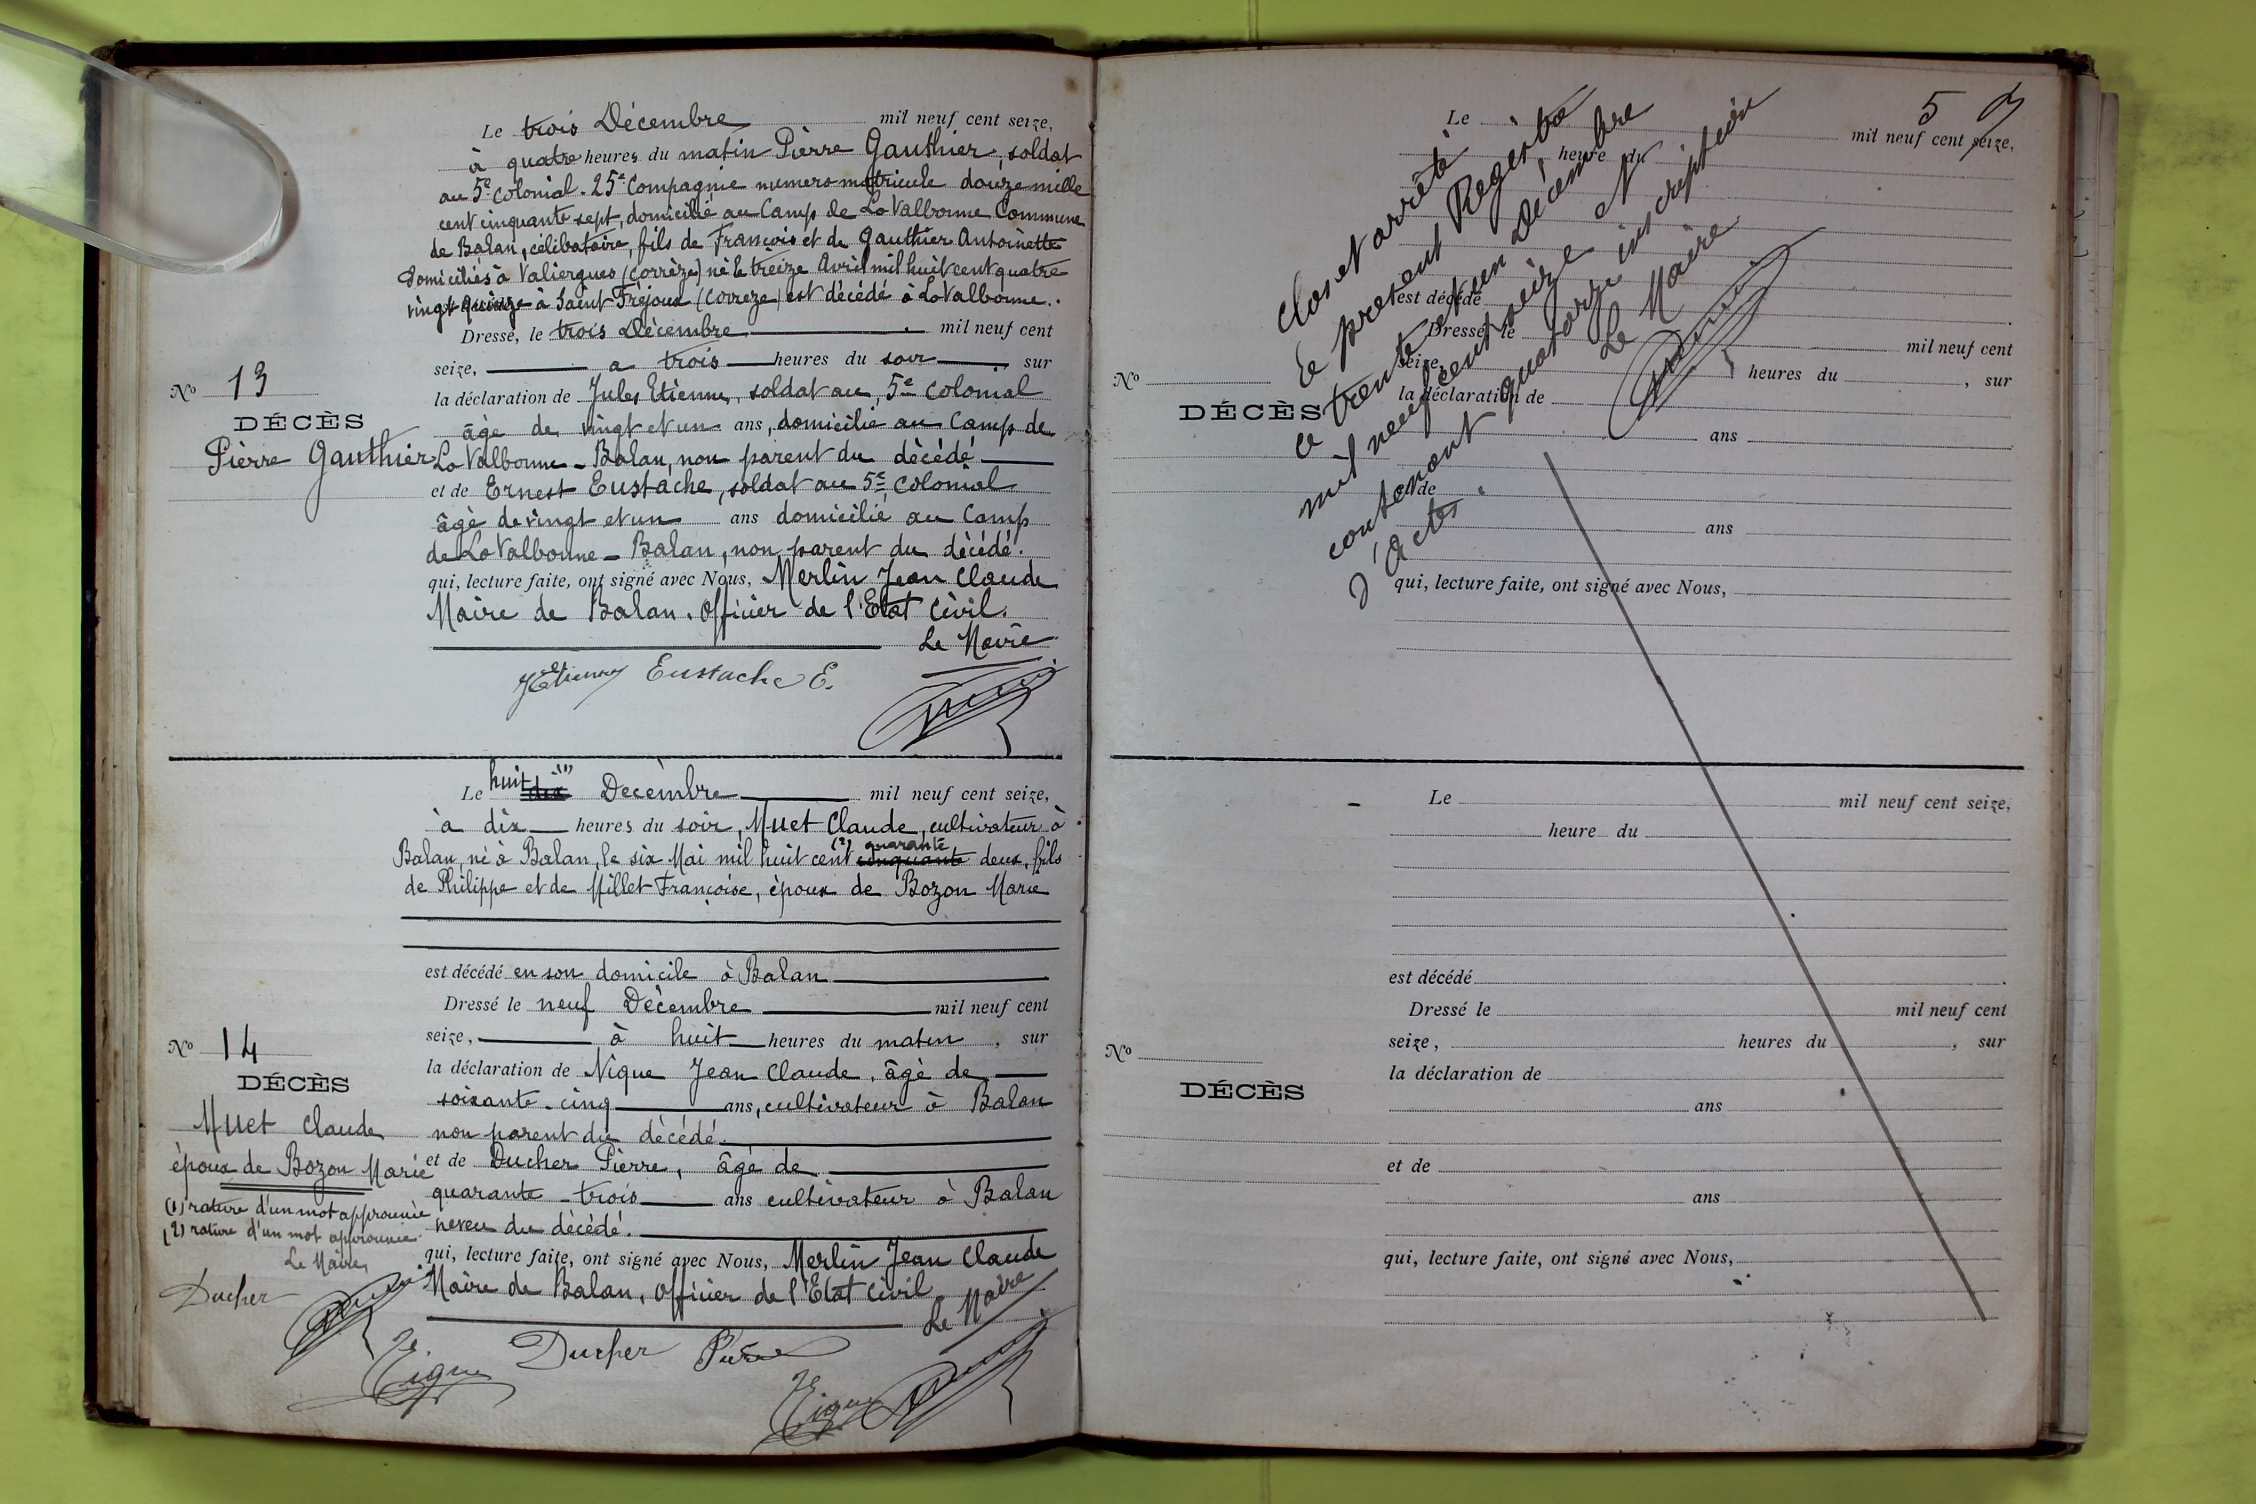 Le trois Décembre mil neuf cent seize,
à quatre heures du matin Pierre Gauthier, soldat
au 5e Colonial. 25e Compagnie numero matricule douze mille
cent cinquante sept, domicilié au Camp de La Valbonne Commune
de Balan, célibataire, fils de François et de Gauthier Antoinette
domiciliés à Valiergues (Corrèze) né le treize Avril mil huit cent quatre
vingt quinze à Saint Fréjoux (Correze) est décédé à La Valbonne.
Dressé, le trois Décembre mil neuf cent
seize, a trois heures du soir sur
No 13
la déclaration de Jules Etienne, soldat au 5e Colonial
DÉCÈS
âgé de vingt et un ans, domicilié au Camp de
Pierre Gauthier
La Valbonne - Balan, non parent du décédé
et de Ernest Eustache, soldat au 5e Colonial
âgé de vingt et un ans domicilié au Camp
de La Valbonne - Balan, non parent du décédé.
qui, lecture faite, ont signé avec Nous, Merlin Jean Claude
Maire de Balan. Officier de l'Etat Civil.
Le Maire
JEtienne Eustache E.
Le huit (1) dix Decembre mil neuf cent seize,
à dix heures du soir, Muet Claude, cultivateur à
Balan, né à Balan, le six Mai mil huit cent (2) quarante cinquante deux, fils
de Philippe et de Millet Françoise, époux de Bozon Marie
est décédé en son domicile à Balan
Dressé le neuf Décembre mil neuf cent
seize, à huit heures du matin, sur
No 14
la déclaration de Nique Jean Claude, âgé de
DÉCÈS
soixante-cinq ans, cultivateur à Balan
Muet Claude
non parent du décédé.
époux de Bozon Marie
et de Ducher Pierre, âgé de
quarante-trois ans cultivateur à Balan
(1) rature d'un mot approuvée
neveu du décédé.
(2) rature d'un mot approuvée
Le Maire
qui, lecture faite, ont signé avec Nous, Merlin Jean Claude
Maire de Balan, Officier de l'Etat Civil
Le Maire
Ducher
Ducher Pierre
5
Le mil neuf cent seize,
heure du
est décédé
Dressé le mil neuf cent
seize, heures du , sur
No
la déclaration de
DÉCÈS
ans
et de
ans
qui, lecture faite, ont signé avec Nous,
Clos et arrêté
le présent Registre
ce trente et un Décembre
mil neuf cent seize
contenant quatorze inscriptions
d'Actes.
Le Maire
Le mil neuf cent seize,
heure du
est décédé
Dressé le mil neuf cent
seize, heures du , sur
No
la déclaration de
DÉCÈS
ans
et de
ans
qui, lecture faite, ont signé avec Nous,